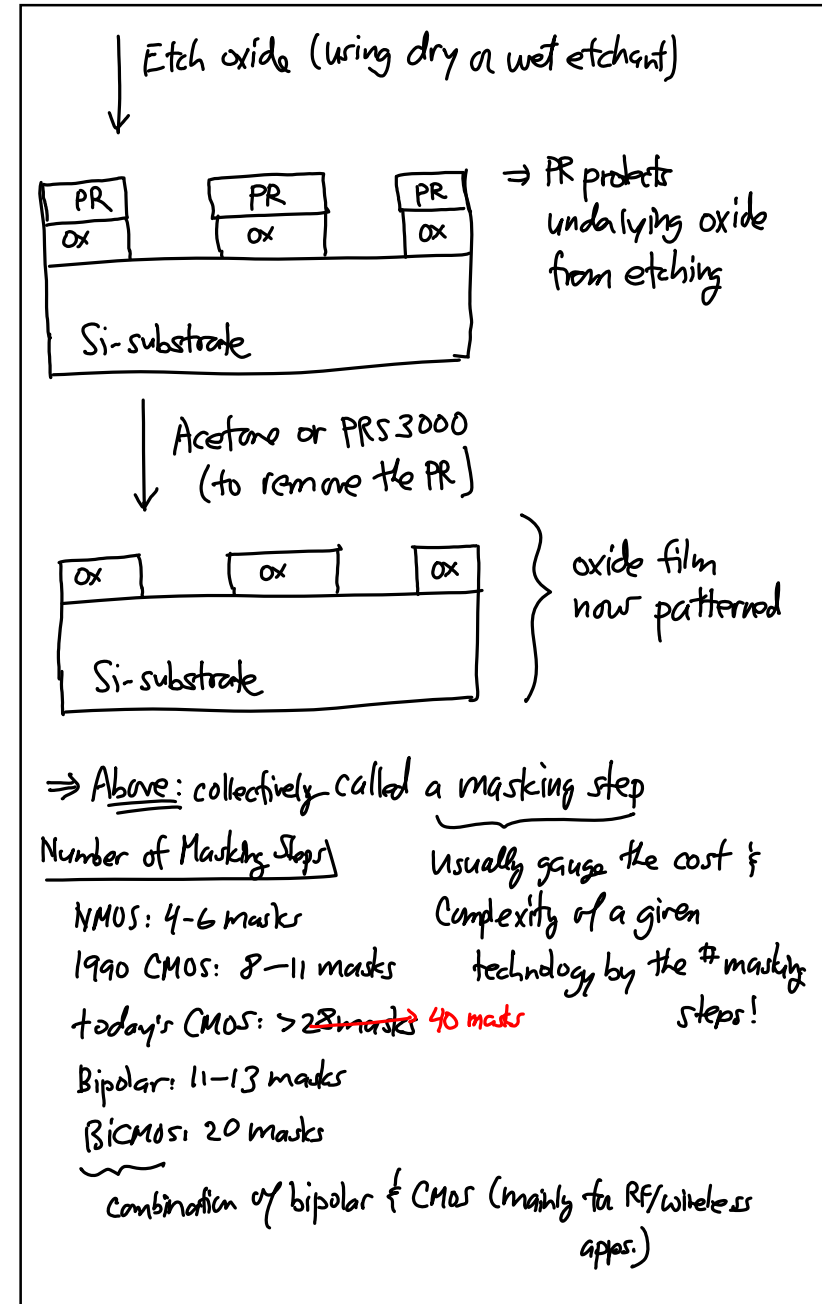 Etch oxide (using dry or wet etchant)
PR PR PR
ox ox ox
Si-substrate
⇒ PR protects
underlying oxide
from etching
Acetone or PRS3000
(to remove the PR)
ox ox ox
Si-substrate
oxide film
now patterned
⇒ Above: collectively called a masking step
Number of Masking Steps
NMOS: 4-6 masks
1990 CMOS: 8-11 masks
today's CMOS: >28 masks 40 masks
Bipolar: 11-13 masks
BiCMOS: 20 masks
usually gauge the cost &
complexity of a given
technology by the # masking
steps!
combination of bipolar & CMOS (mainly for RF/wireless
apps.)